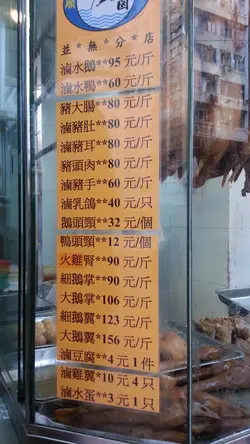 順
園
並無分店
滷水鵝**95元/斤
滷水鴨**60元/斤
豬大腸**80元/斤
滷豬肚**80元/斤
滷豬耳**80元/斤
豬頭肉**80元/斤
滷豬手**60元/斤
滷乳鴿**40元/只
鵝頭頸**32元/個
鴨頭頸**12元/個
火雞腎**90元/斤
細鵝掌**90元/斤
大鵝掌*106元/斤
細鵝翼*123元/斤
大鵝翼*156元/斤
滷豆腐**4元1件
滷雞翼*10元4只
滷水蛋**3元1只